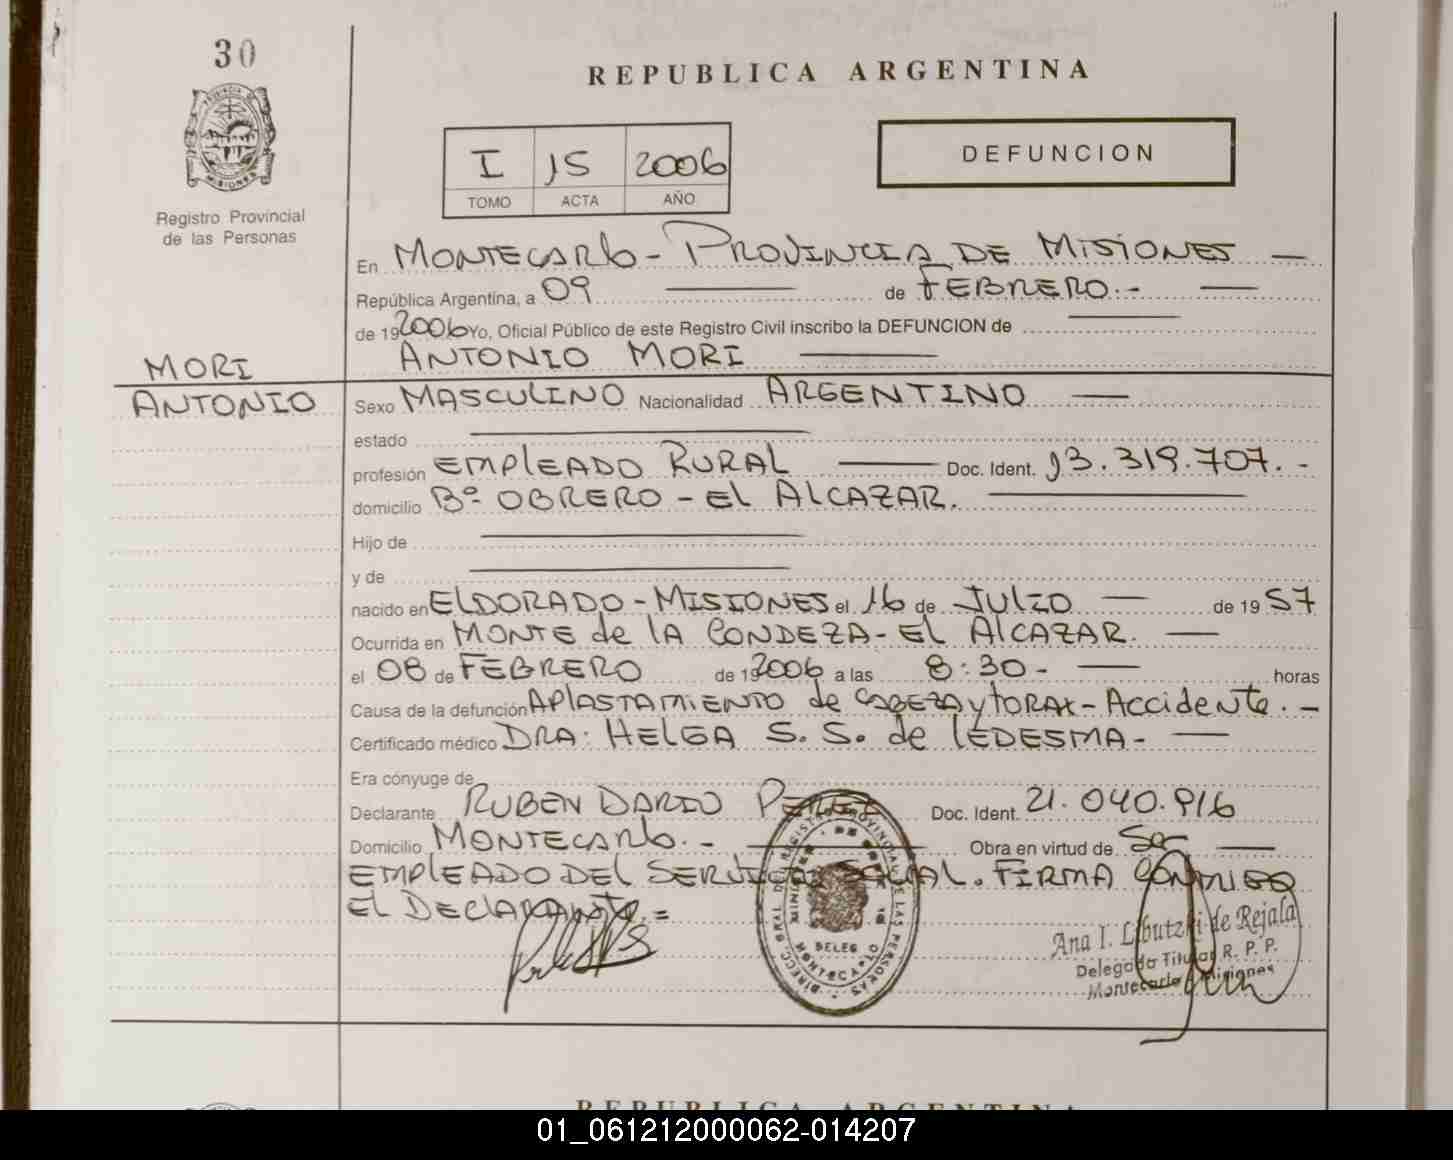 30
REPUBLICA ARGENTINA
DEFUNCION
I 15 2006
TOMO ACTA AÑO
Registro Provincial
de las Personas
En MONTECARLO - PROVINCIA DE MISIONES
República Argentina, a 09 de FEBRERO.-
de 192006 Yo, Oficial Público de este Registro Civil inscribo la DEFUNCION de
ANTONIO MORI
MORI
ANTONIO
Sexo MASCULINO Nacionalidad ARGENTINO
estado
profesión EMPLEADO RURAL Doc. Ident. 13.319.707.-
domicilio Bº OBRERO - EL ALCAZAR.
Hijo de
y de
nacido en ELDORADO - MISIONES el 16 de JULIO de 19 57
Ocurrida en MONTE de LA CONDEZA - EL ALCAZAR.
el 08 de FEBRERO de 192006 a las 8:30- horas
Causa de la defunción APLASTAMIENTO de CABEZA y TORAX - Accidente.-
Certificado médico DRA: HELGA S. S. de LEDESMA-
Era cónyuge de
Declarante RUBEN DARIO Doc. Ident. 21.040.916
Domicilio MONTECARLO.- Obra en virtud de Ser
EMPLEADO DEL SERVICIO SOCIAL. FIRMA CONMIGO
EL DECLARANTE.=
Ana I. Libutzki de Rejala
Delegada Titular R. P. P.
Montecarlo Misiones
REPUBLICA ARGENTINA
01_061212000062-014207